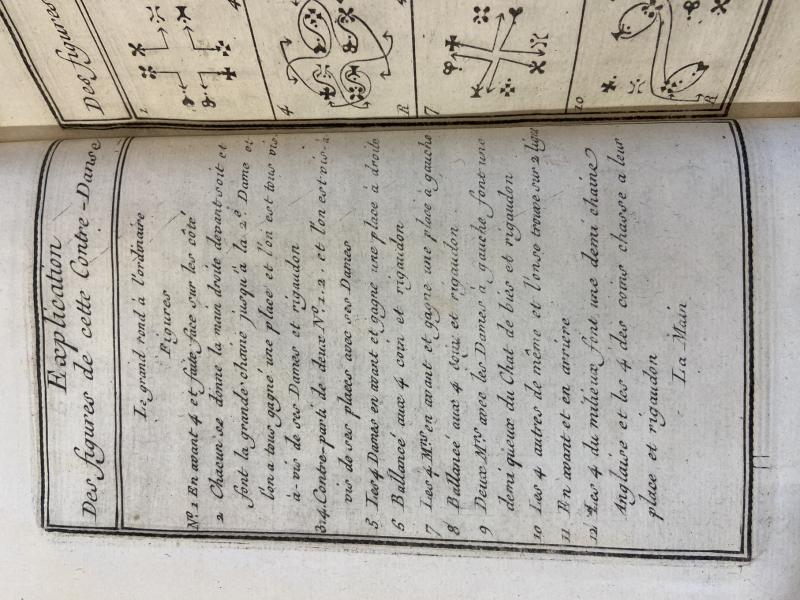 Explication
Des figures de cette Contre-Danse
Le grand rond à l'ordinaire
Figures
No. 1 En avant 4 et faite face sur les côté
2 Chacun se donne la main droite devant soit et
font la grande chaine jusqu'à la 2e Dame et
l'on a tous gagné une place et l'on est tous vis
à-vis de ses Dames et rigaudon
3.4. Contre-parti de deux No. 1.2. et l'on est vis-à
vis de ses places avec ses Dames
5 Les 4 Dames en avant et gagne une place à droite
6 Ballancé aux 4 coin et rigaudon
7 Les 4 Mrs en avant et gagne une place à gauche
8 Ballancé aux 4 coin et rigaudon
9 Deux Mrs avec les Dames à gauche font une
demi queux du Chat de biës et rigaudon
10 Les 4 autres de même et l'on se trouve sur 2 ligne
11 En avant et en arriere
12 Les 4 du milieux font une demi chaine
Anglaise et les 4 des coins chasse a leur
place et rigaudon
La Main
Des figures
1
4
R
7
10
R